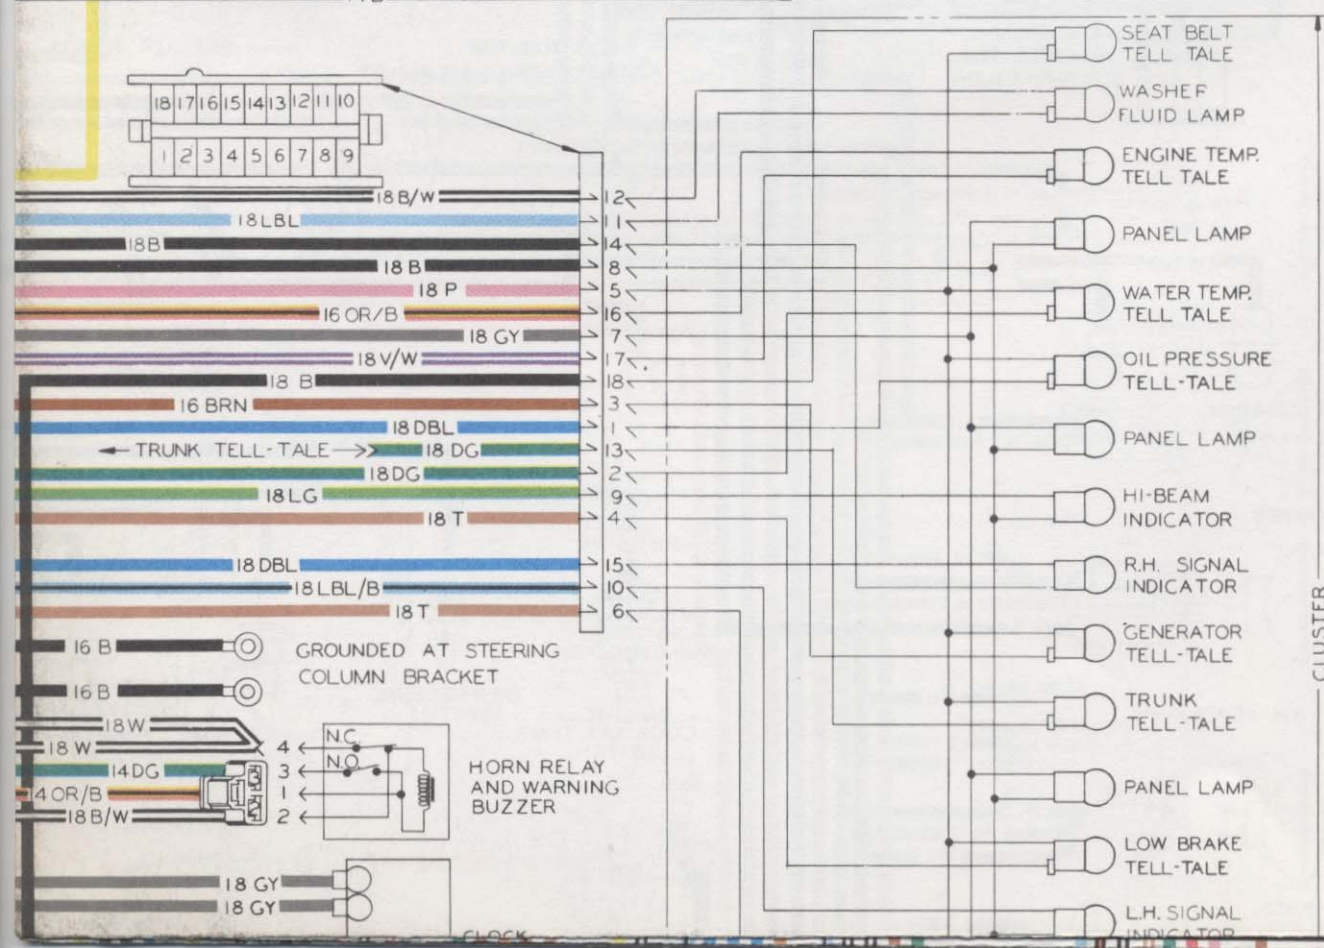 18 17 16 15 14 13 12 11 10
1 2 3 4 5 6 7 8 9
18 B/W 12
18 LBL 11
18B 14
18 B 8
18 P 5
16 OR/B 16
18 GY 7
18 V/W 17
18 B 18
16 BRN 3
18 DBL 1
TRUNK TELL-TALE 18 DG 13
18DG 2
18 LG 9
18 T 4
18 DBL 15
18 LBL/B 10
18 T 6
16 B
16 B
GROUNDED AT STEERING
COLUMN BRACKET
18W
18 W 4
14DG 3
4 OR/B 1
18 B/W 2
N.C.
N.O.
HORN RELAY
AND WARNING
BUZZER
18 GY
18 GY
CLOCK
SEAT BELT
TELL TALE
WASHER
FLUID LAMP
ENGINE TEMP.
TELL TALE
PANEL LAMP
WATER TEMP.
TELL TALE
OIL PRESSURE
TELL-TALE
PANEL LAMP
HI-BEAM
INDICATOR
R.H. SIGNAL
INDICATOR
GENERATOR
TELL-TALE
TRUNK
TELL-TALE
PANEL LAMP
LOW BRAKE
TELL-TALE
L.H. SIGNAL
INDICATOR
CLUSTER